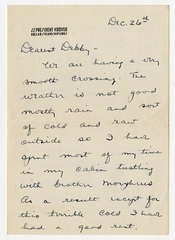 S.S. PRESIDENT HOOVER
DOLLAR STEAMSHIP LINES
Dec. 26th
Dearest Debby -
We are having a very
smooth crossing. The
weather is not good
mostly rain and sort
of cold and raw
outside so I have
spent most of my time
in my cabin tustling
with brother Morpheus
As a result except for
this terrible cold I have
had a good rest.